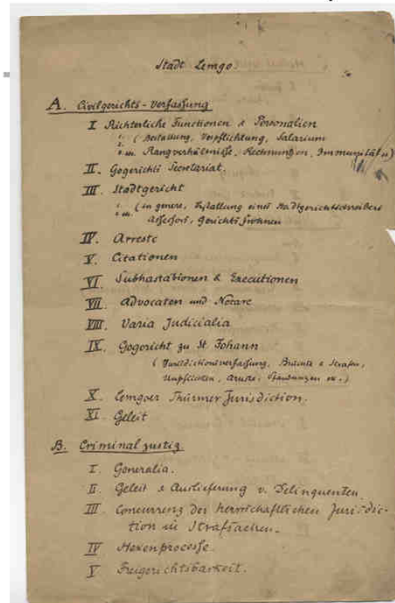 Stadt Lemgo
A. Civilgerichts-Verfassung
I Richterliche Functionen & Personalien
(Bestallung, Verpflichtung, Salarium
Rangverhältnisse, Rechnungen, Immunitäten)
II. Gogerichts Secretariat.
III. Stadtgericht
(in genere, Bestallung eines Stadtgerichtsschreibers
Assessors, Gerichtsfrohnen
IV. Arreste
V. Citationen
VI Subhastationen & Executionen
VII. Advocaten und Notare
VIII. Varia Judicialia
IX. Gogericht zu St. Johann
(Jurisdictionsverfassung, Brüchte & Strafen,
Arreste, Pfandungen etc.)
X. Lemgoer Thürmer Jurisdiction.
XI. Geleit
B. Criminaljustiz
I. Generalia.
II. Geleit & Auslieferung v. Delinquenten.
III. Concurrenz der herrschaftlichen Jurisdic-
tion in Strafsachen.
IV Hexenprocesse.
V Freigerichtsbarkeit.